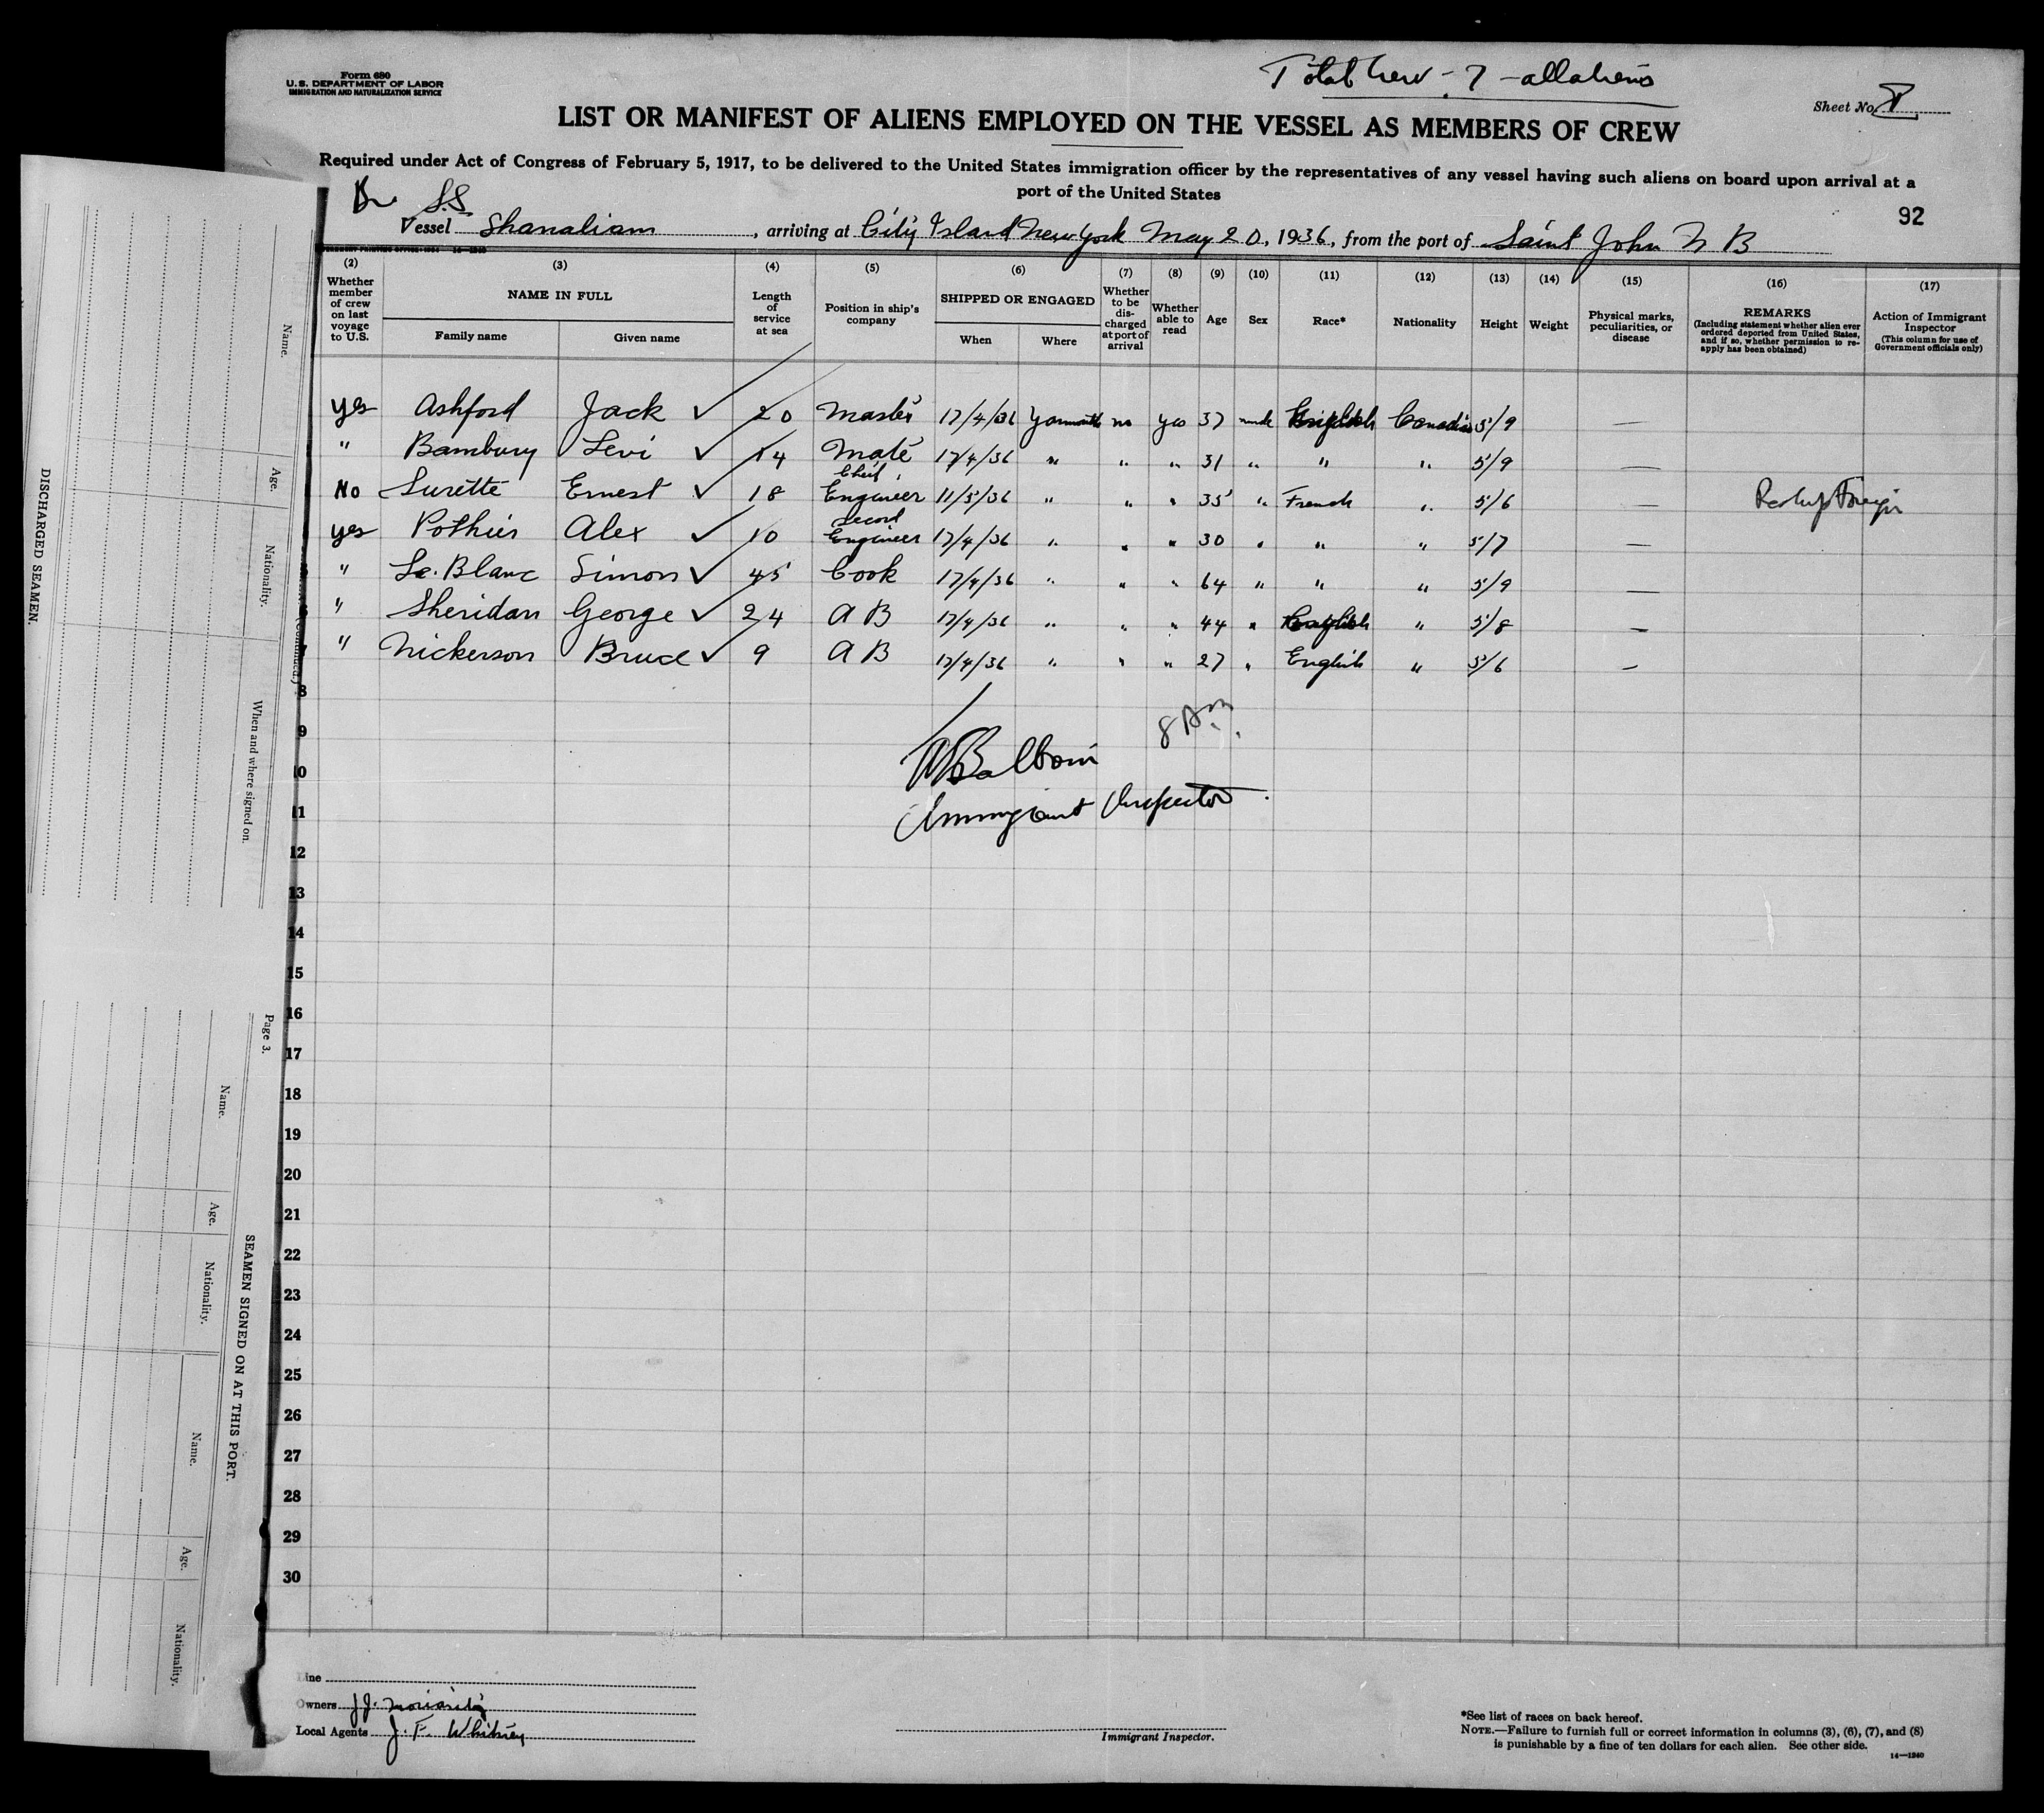 Form 680
U. S. DEPARTMENT OF LABOR
IMMIGRATION AND NATURALIZATION SERVICE
Total Crew - 7 - all aliens
Sheet No.
LIST OR MANIFEST OF ALIENS EMPLOYED ON THE VESSEL AS MEMBERS OF CREW
Required under Act of Congress of February 5, 1917, to be delivered to the United States immigration officer by the representatives of any vessel having such aliens on board upon arrival at a
port of the United States
92
Br. S.S.
Vessel Shanalian, arriving at City Island New York May 20, 1936, from the port of Saint John N B
(2) (3) (4) (5) (6) (7) (8) (9) (10) (11) (12) (13) (14) (15) (16) (17)
Whether member of crew on last voyage to U.S.
NAME IN FULL
Family name Given name
Length of service at sea
Position in ship's company
SHIPPED OR ENGAGED
When Where
Whether to be discharged at port of arrival
Whether able to read
Age
Sex
Race*
Nationality
Height
Weight
Physical marks, peculiarities, or disease
REMARKS
(Including statement whether alien ever ordered deported from United States, and if so, whether permission to reapply has been obtained)
Action of Immigrant Inspector
(This column for use of Government officials only)
yes Ashford Jack ✓ 20 Master 17/4/36 Yarmouth no yes 37 male English Canadian 5/9 —
" Bambury Levi ✓ 14 Mate 17/4/36 " " " 31 " " " 5/9 —
No Surette Ernest ✓ 18 Chief Engineer 11/5/36 " " " 35 " French " 5/6 —
yes Pothier Alex ✓ 10 Second Engineer 17/4/36 " " " 30 " " " 5/7 —
" Le. Blanc Simon ✓ 45 Cook 17/4/36 " " " 64 " " " 5/9 —
" Sheridan George ✓ 24 A B 17/4/36 " " " 44 " English " 5/8 —
" Nickerson Bruce ✓ 9 A B 17/4/36 " " " 27 " English " 5/6 —
8
9
10
11
12
13
14
15
16
17
18
19
20
21
22
23
24
25
26
27
28
29
30
8 Am.
Immigrant Inspector.
Line
Owners J.J. Moriarity
Local Agents J. F. Whitney
Immigrant Inspector.
*See list of races on back hereof.
NOTE.—Failure to furnish full or correct information in columns (3), (6), (7), and (8)
is punishable by a fine of ten dollars for each alien. See other side.
14—1240
DISCHARGED SEAMEN.
Name.
Age.
Nationality.
When and where signed on.
Page 3.
SEAMEN SIGNED ON AT THIS PORT.
Name.
Age.
Nationality.
Name.
Age.
Nationality.